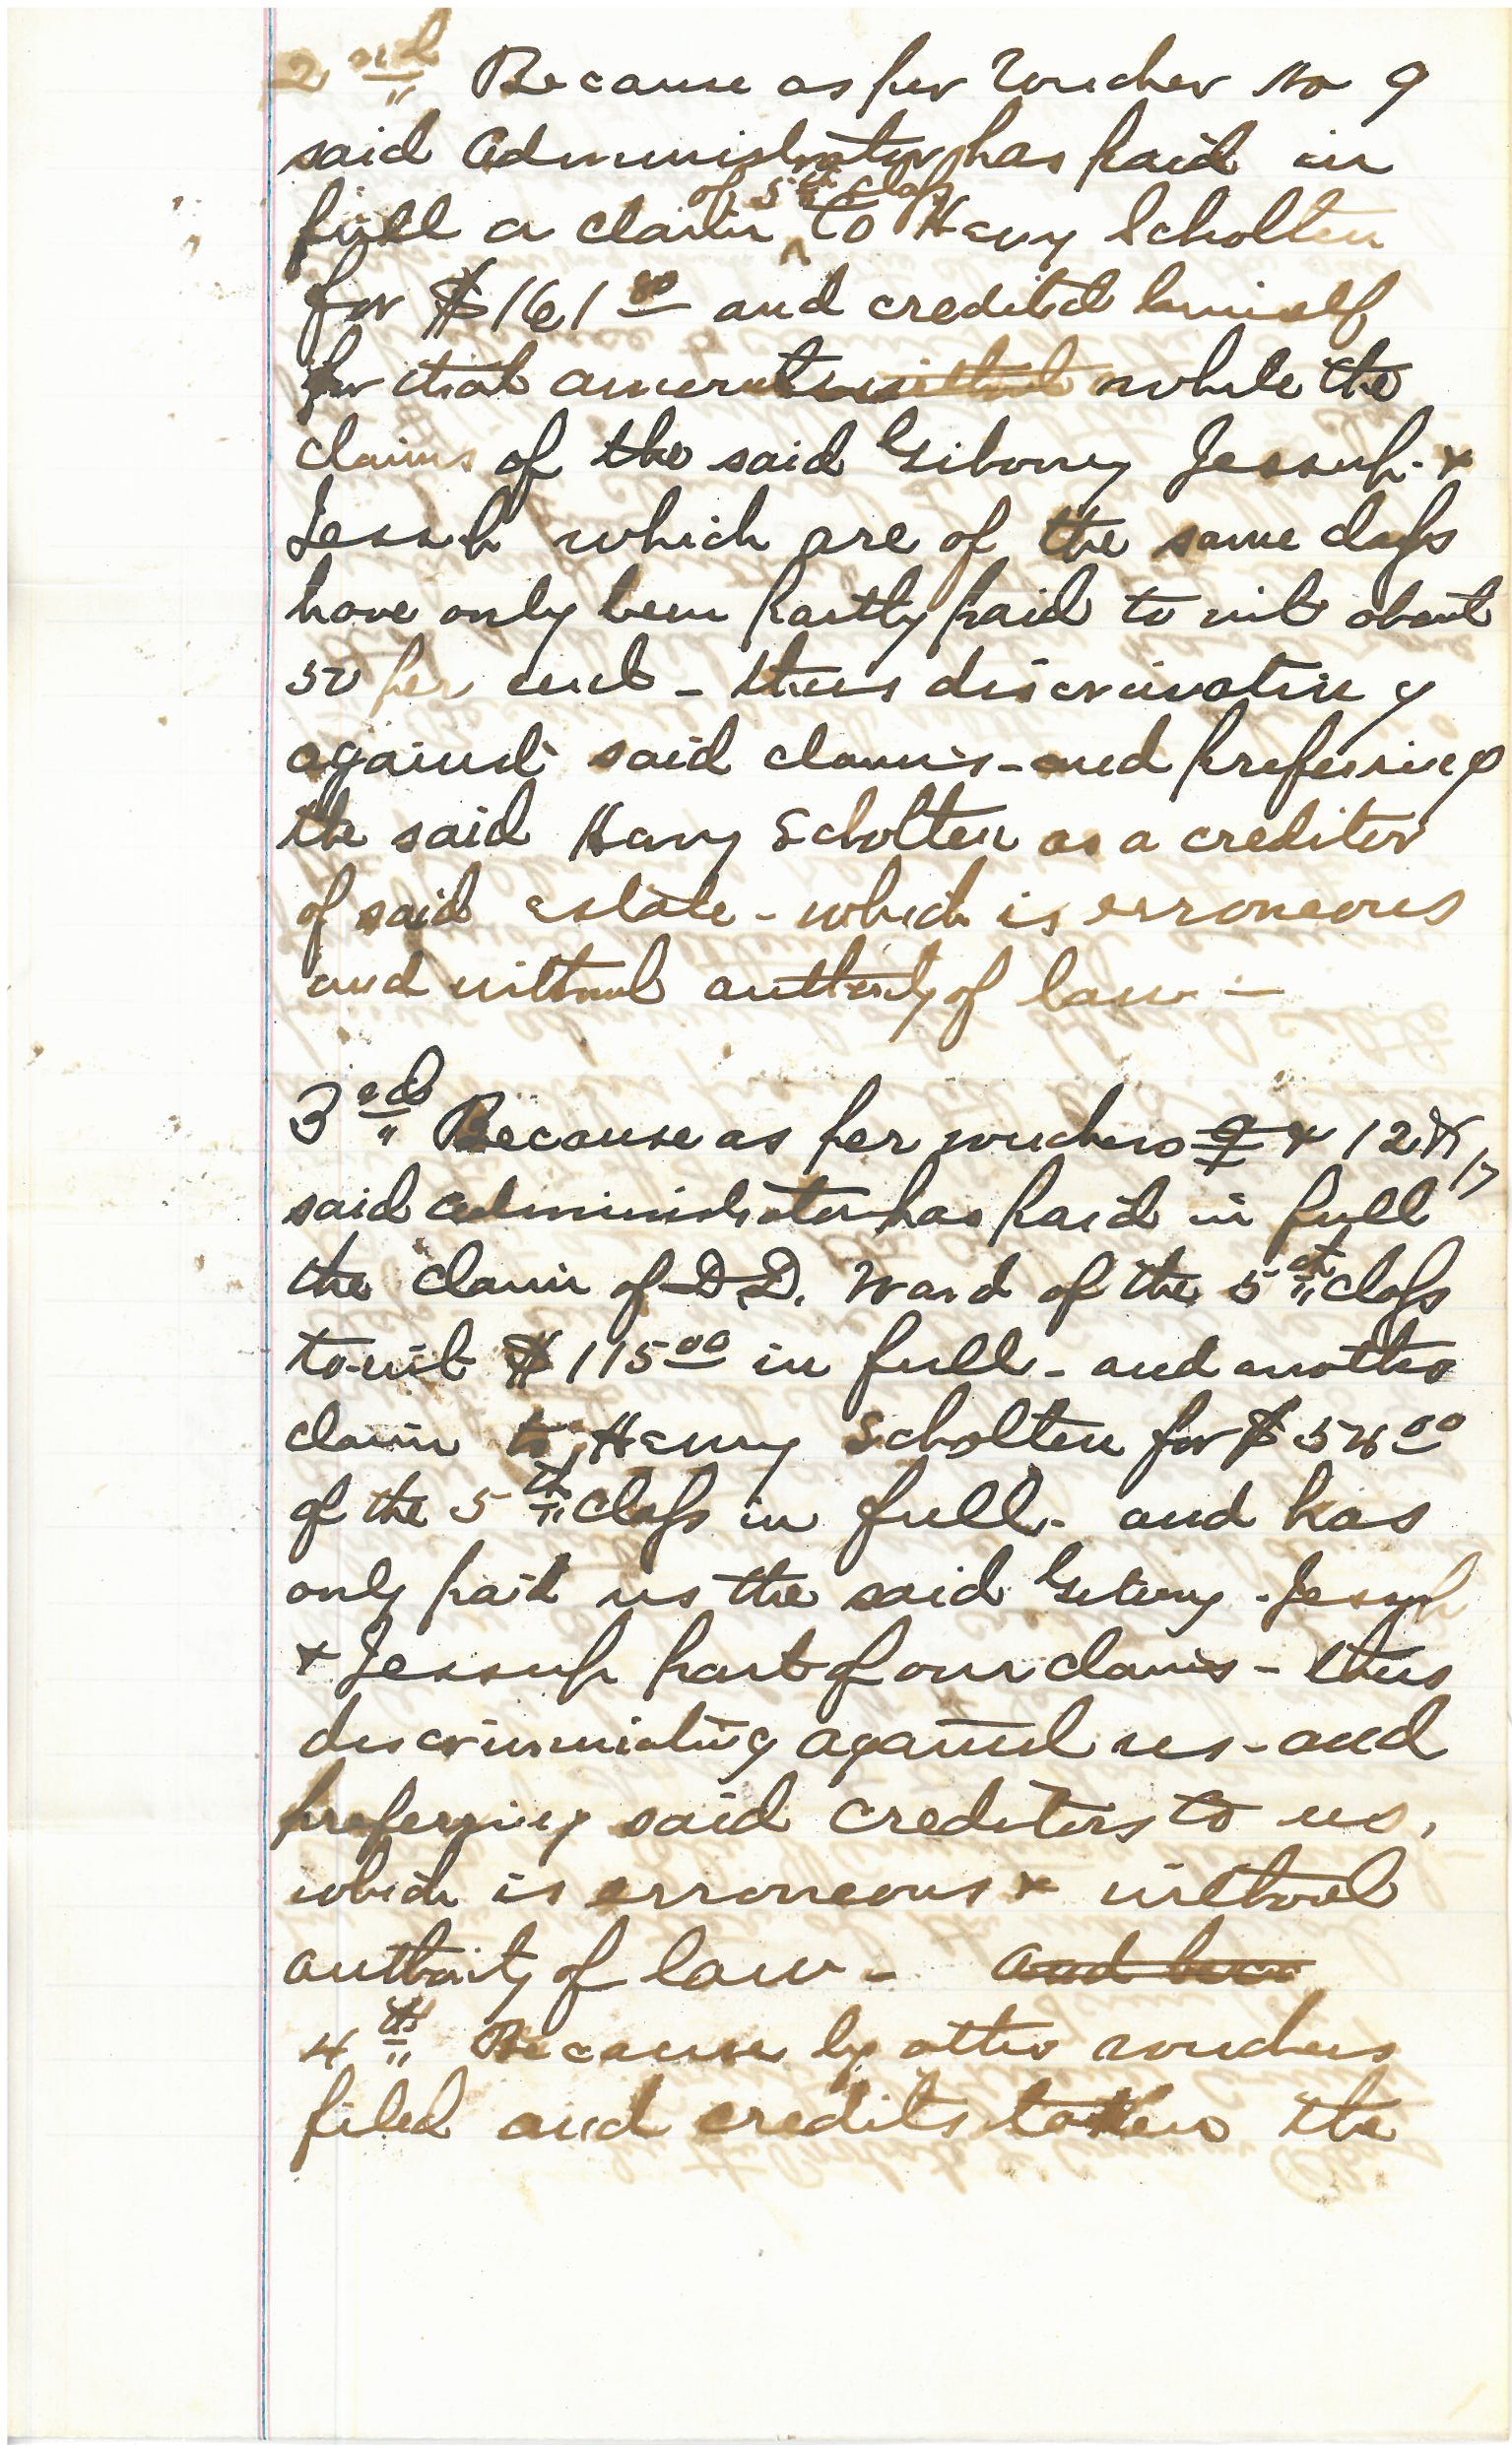 2nd Because as per Voucher No 9
said Administrator has paid in
full a claim of 5th class to Henry Scholten
for $161 80 and credited himself
for that amount while the
claims of the said Giboney Jessup &
Jessup which are of the same class
have only been partly paid to wit about
50 per cent - thus discriminating
against said claims - and preferring
the said Henry Scholten as a creditor
of said estate - which is erroneous
and without authority of law -
3rd Because as per vouchers 9 & 12 & 17
said administrator has paid in full
the claim of D D. Ward of the 5th class
to-wit $115 00 in full - and another
claim to Henry Scholten for $ 00
of the 5th class in full - and has
only paid us the said Giboney - Jessup
& Jessup part of our claims - thus
discriminating against us - and
preferring said creditors to us,
which is erroneous & without
authority of law - and
4th Because by other vouchers
filed and credits taken the